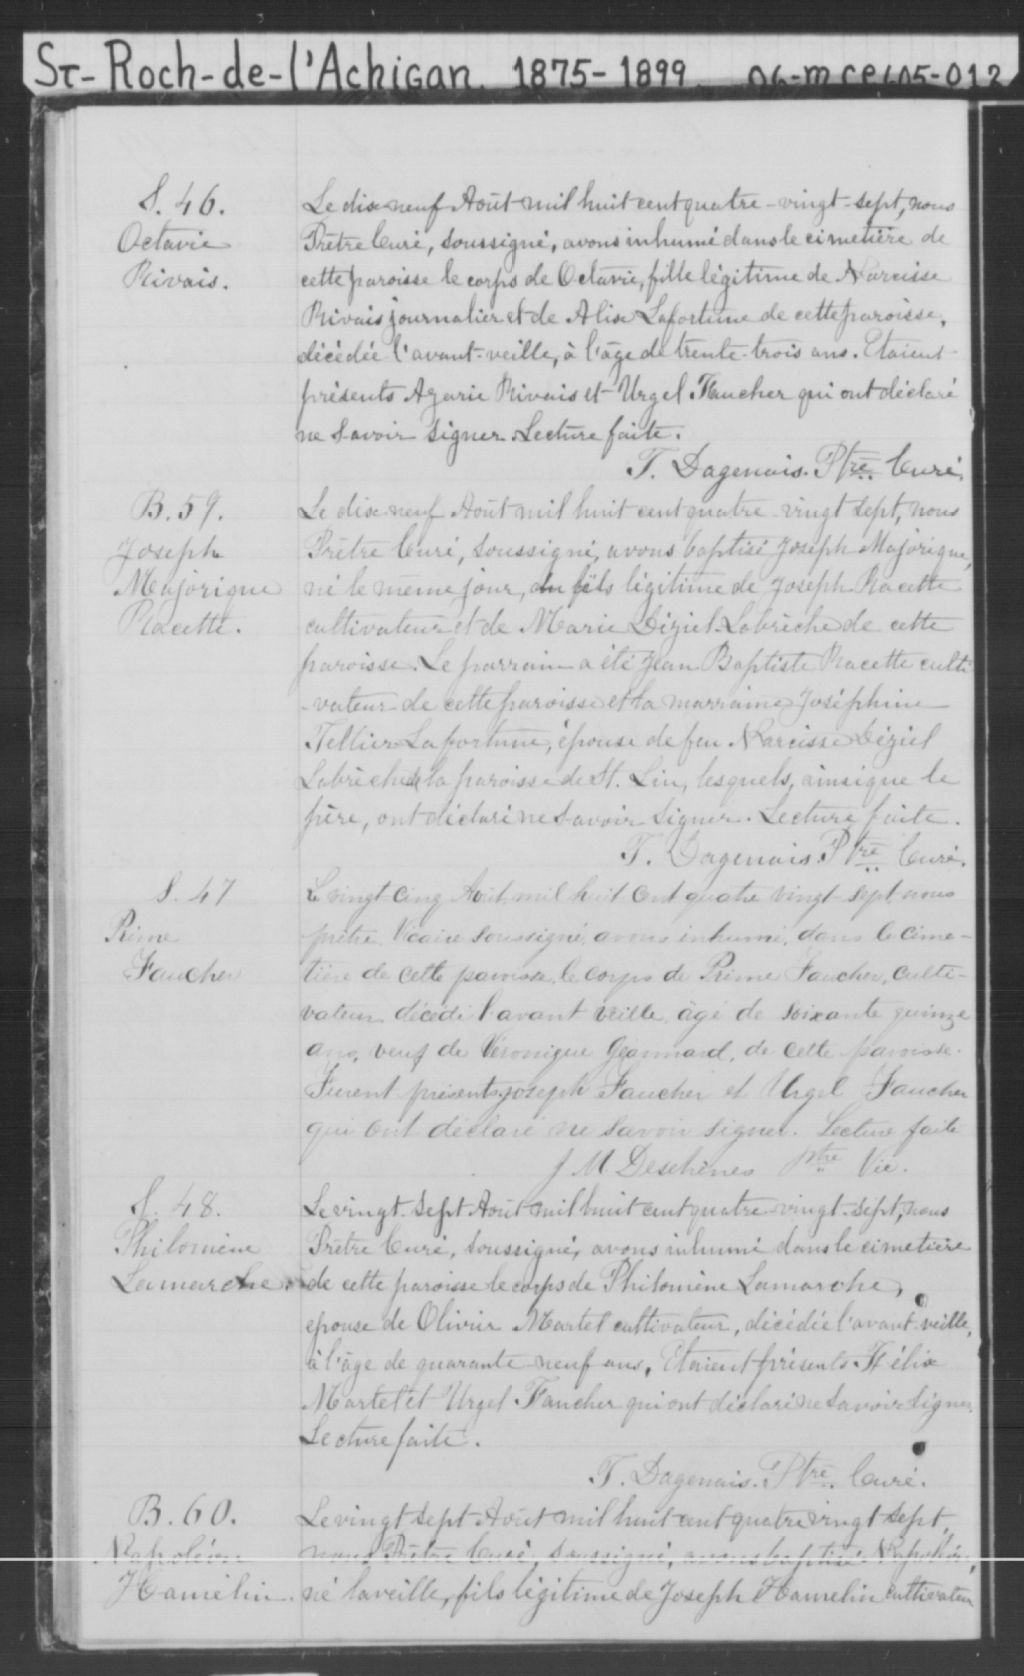 St-Roch-de-l'Achigan. 1875-1899. 06-M CE605-012
S. 46.
Octavie
Rivais.
Le dix-neuf Août mil huit cent quatre-vingt-sept, nous
Prêtre Curé, soussigné, avons inhumé dans le cimetière de
cette paroisse le corps de Octavie, fille légitime de Narcisse
Rivais journalier et de Alise Lafortune de cette paroisse,
décédée l'avant-veille, à l'âge de trente-trois ans. Etaient
présents Azarie Rivais et Urgel Faucher qui ont déclaré
ne savoir signer. Lecture faite.
T. Dagenais. Ptre Curé.
B. 59.
Joseph
Majorique
Racette.
Le dix-neuf Août mil huit cent quatre-vingt sept, nous
Prêtre Curé, soussigné, avons baptisé Joseph Majorique,
né le même jour, du fils légitime de Joseph Racette
cultivateur et de Marie Déziel Labrèche de cette
paroisse. Le parrain a été Jean Baptiste Racette culti
-vateur de cette paroisse et la marraine Joséphine
Tellier Lafortune, épouse de feu Narcisse Déziel
Labrèche de la paroisse de St. Lin, lesquels, ainsi que le
père, ont déclaré ne savoir signer. Lecture faite.
T. Dagenais. Ptre Curé.
S. 47
Prime
Faucher
Le vingt cinq Août mil huit cent quatre vingt sept nous
prêtre Vicaire soussigné, avons inhumé, dans le cime-
tière de cette paroisse, le corps de Prime Faucher, culti-
vateur décédé l'avant veille âgé de soixante quinze
ans, veuf de Véronique Jeannard, de cette paroisse.
Furent présents Joseph Faucher et Urgel Faucher
qui ont déclaré ne savoir signer. Lecture faite
J. M Deschênes ptre Vic.
S. 48.
Philomène
Lamarche
Le vingt-sept Août mil huit cent quatre-vingt-sept, nous
Prêtre Curé, soussigné, avons inhumé dans le cimetière
de cette paroisse le corps de Philomène Lamarche,
épouse de Olivier Martel cultivateur, décédée l'avant-veille,
à l'âge de quarante-neuf ans. Etaient présents Félix
Martel et Urgel Faucher qui ont déclaré ne savoir signer.
Lecture faite.
T. Dagenais. Ptre. Curé.
B. 60.
Napoléon
Hamelin.
Le vingt sept Août mil huit cent quatre vingt sept,
nous Prêtre Curé, soussigné, avons baptisé Napoléon,
né la veille, fils légitime de Joseph Hamelin cultivateur